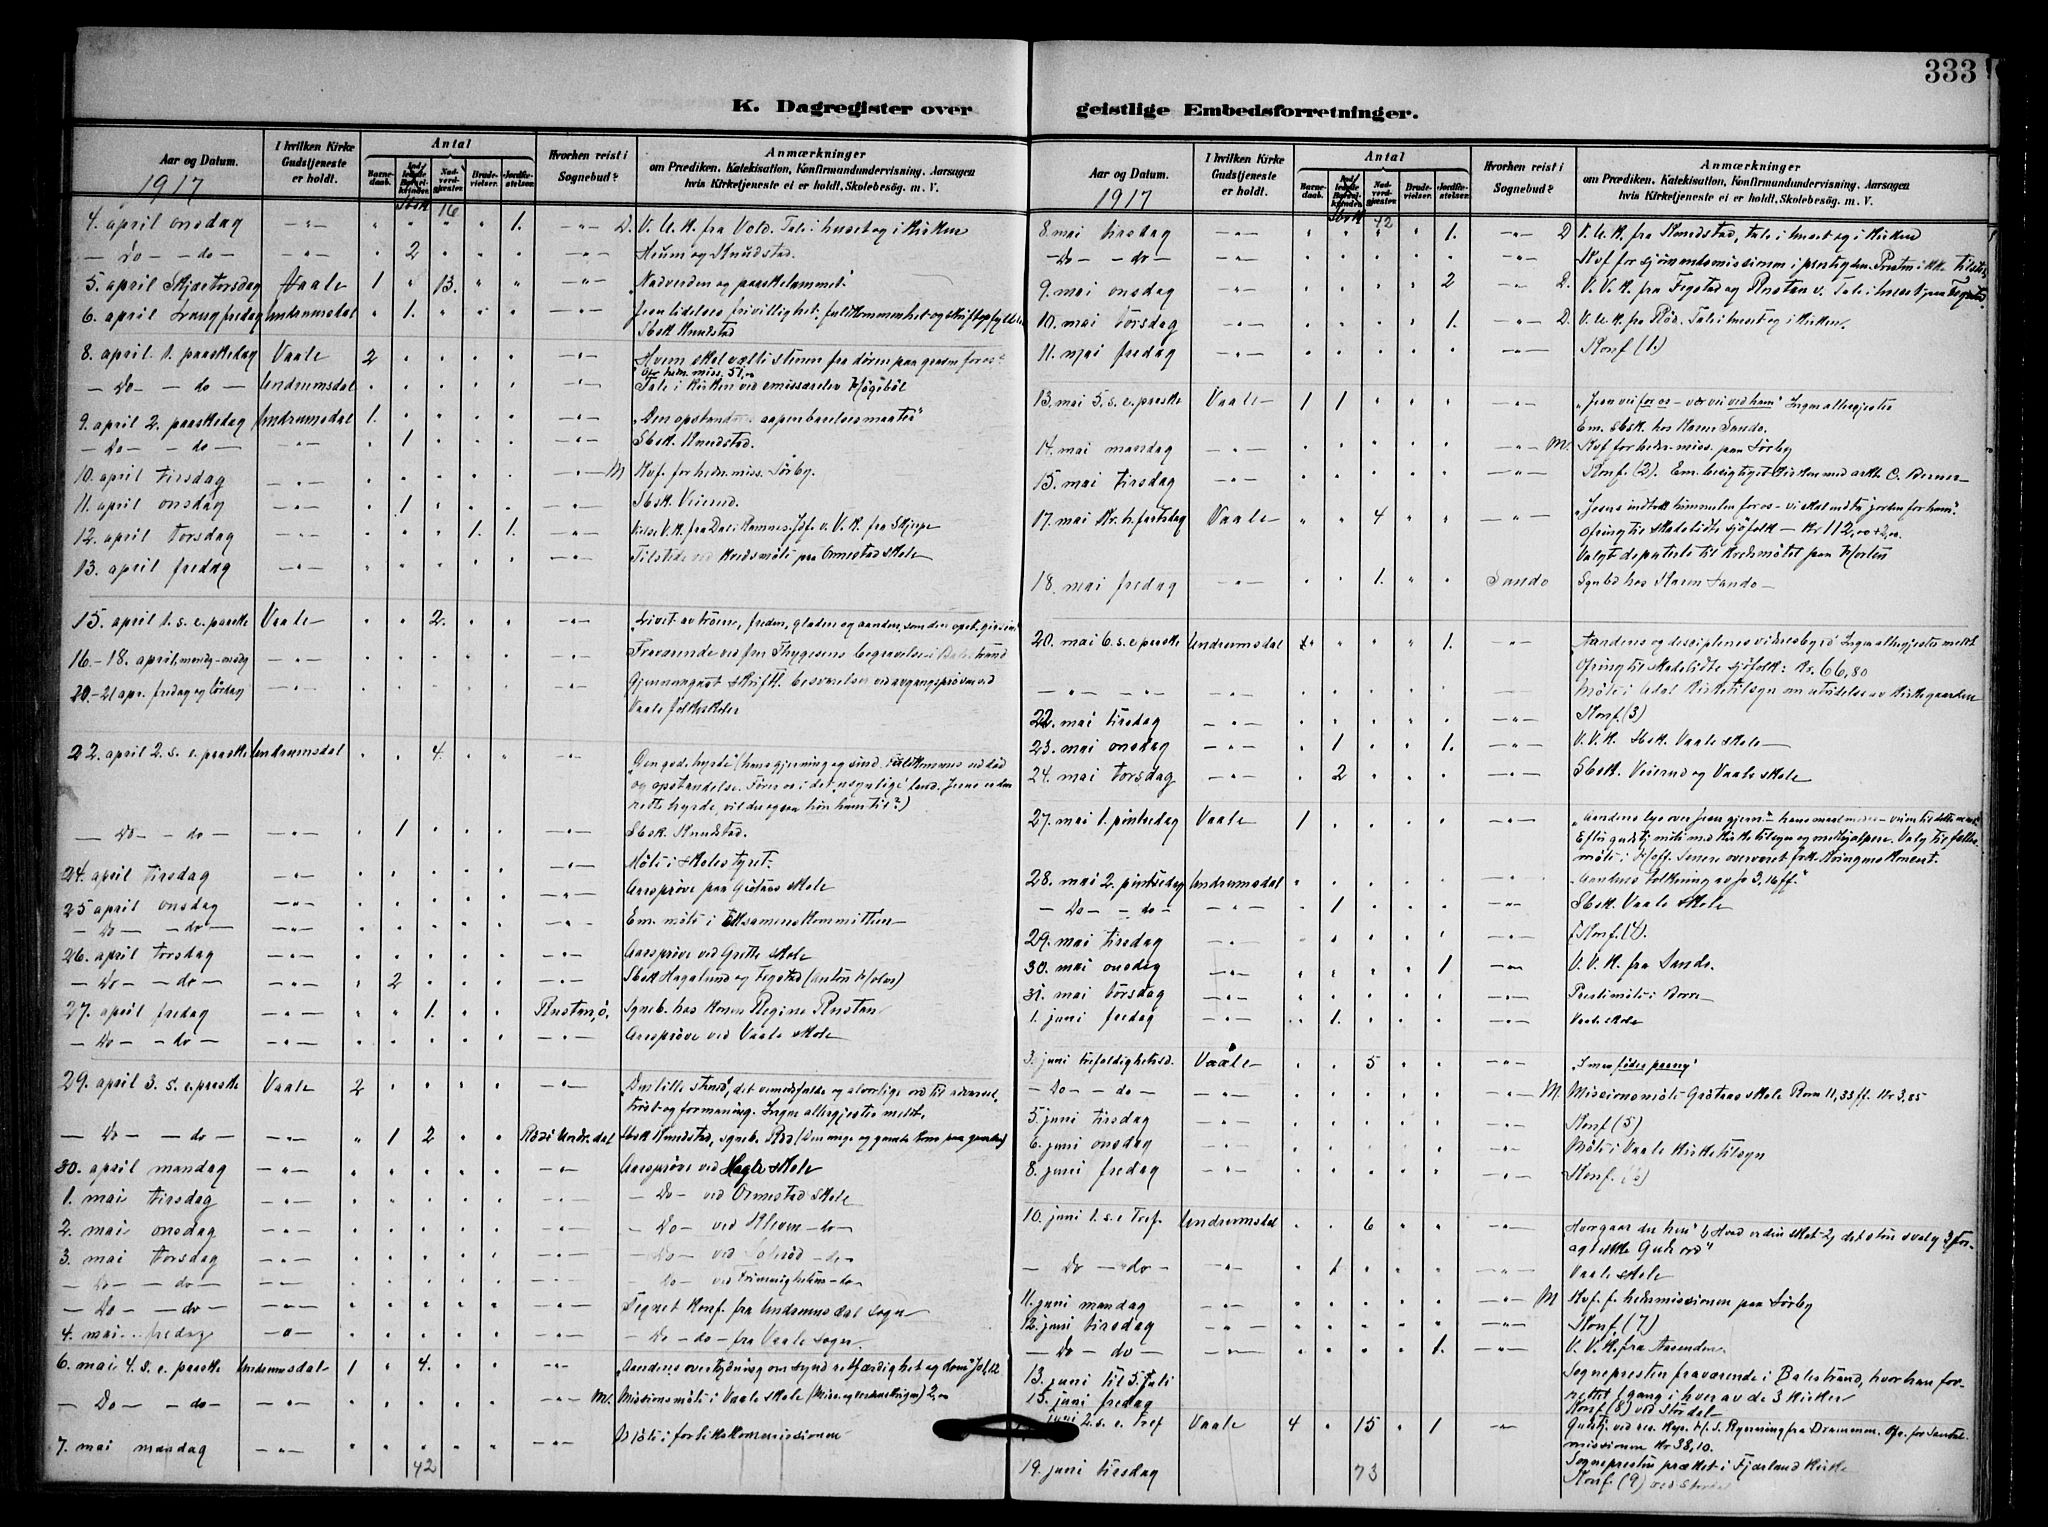 333
K. Dagregister over
geistlige Embedsforretninger.
Aar og Datum.
1917
I hvilken Kirke Gudstjeneste er holdt.
Antal
Barnedaab.
Nadverdgjæster.
Brudevielser.
Jordfæstelser.
Hvorhen reist i Sognebud?
Anmærkninger
om Prædiken. Katekisation, Konfirmandundervisning. Aarsagen
hvis Kirketjeneste ei er holdt. Skolebesøg. m. V.
Sbsk 16
4. april onsdag 1. D. V. U. K. fra Vold. Tale i huset og i Kirken
- Do - - do - 2 Heum og Knudstad.
5. april Skjærtorsdag Vaale 1 13. "Nadverden og paaskelammet"
6. april Langfredag Undrumsdal 1. Jesu lidelses frivillighet, fuldkommenhet og
Sbsk Knudstad
8. april 1. paaskedag Vaale 2 Hvem skal vælte stenen fra døren paa graven for os?
- Do - - do - Undrumsdal Tale i Kirken ved emissæren
9. april 2. paaskedag Undrumsdal 1. "Den opstandnes aapenbarelsesmaate"
- Do - - do - 1 Sbsk. Knudstad.
10. april tirsdag M Kvf. for hedn. miss. Sørby.
11. april onsdag 1 Sbsk Veierud.
12. april torsdag 1. 1. Vielse V. K. fra Dal i Ramnes. Jdf. v. V. K. fra
13. april fredag Tilstede ved Kredsmøte paa Ormestad skole
15. april 1. s. e. paaske Vaale 2. "Livet av troen, freden, glæden og aanden, som den opst. giver"
16.-18. april, mandg-onsdg Fraværende ved fru Thygesens begravelse i Balestrand
20-21 apr. fredag og lördag Gjennemgaat skriftl. besvarelser ved avgangsprøven ved
Vaale folkeskoler
22. april 2. s. e. paaske Undrumsdal 4. "Den gode hyrde" (hans gjerning og sind. Fuldkommes ved død
og opstandelse. Fører os i det usynlige land. Jesus er den
rette hyrde, vil du ogsaa høre ham til?)
- Do - - do - 1 Sbsk. Knudstad.
24. april tirsdag Møte i skolestyret.
25 april onsdag Aarsprøve paa skole
- Do - - do - Em. møte i Eksamenskommitteen
26. april torsdag Aarsprøve ved Grette skole
- Do - - do - 2 Sbsk Hagalund og Fegstad
27. april fredag 1. Rustan, ö. Sgneb. hos Konen Regine Rustan
- Do - - do - Aarsprøve ved Vaale skole
29. april 3. s. e. paaske Vaale 2 "Den lille stund", det vemodsfulde og alvorlige ord til advarsel,
trøst og formaning. Ingen altergjester meldt.
- Do - - do - 1 2 Rød i Undr.dal Sbsk Knudstad, sgneb. Rød (Den unge og gamle kone paa gaarden)
30. april mandag Aarsprøve ved skole
1. mai tirsdag - Do - ved Ormestad skole
2. mai onsdag - Do - ved Kleven - do -
3. mai torsdag - Do - ved Solerød - do -
- Do - - do - - Do - ved - do -
- Do - - do - Tegnet Konf. fra Undrumsdal sogn
4. mai fredag - Do - do - fra Vaale sogn.
6. mai 4. s. e. paaske Undrumsdal 1 4. "Aandens overtydning om synd retfærdighet og dom"
- Do - - do - M. Missionsmøte i Vaale skole
7. mai mandag Møte i forlikskommissionen
42
Aar og Datum.
1917
I hvilken Kirke Gudstjeneste er holdt.
Antal
Barnedaab.
Nadverdgjæster.
Brudevielser.
Jordfæstelser.
Hvorhen reist i Sognebud?
Anmærkninger
om Prædiken. Katekisation, Konfirmandundervisning. Aarsagen
hvis Kirketjeneste ei er holdt. Skolebesøg. m. V.
Sbsk 42
8. mai tirsdag 1. D V. U. K. fra Komdstad, tale i huset og i Kirken
- Do - - do - Kvf for sjömandsmissionen i prestegden. Presten ikke tilstede
9. mai onsdag 2 D. V. V. K. fra Fegstad og Rustan v. Tale i huset paa Fegstad.
10. mai torsdag 1. D. V. U. K. fra Rød. Tale i huset og i Kirken.
11. mai fredag Konf (1.)
13. mai 5. s. e. paaske Vaale 1 1 "Jesu vei for os - vor vei ved ham" Ingen altergjester
Em. Sbsk. hos Karen Sando.
14. mai mandag M. Kvf for hedn. miss. paa Sørby
15. mai tirsdag Konf. (2). Em. besigtiget Kirken med arkt. C. Berner
17. mai Kr. h. fartsdag Vaale 4 "Jesus indtok himmelen for os - vi skal indta jorden for ham"
Ofring til skadelidte sjöfolk - Kr 112,
Valgt deputerte til Kredsmötet paa Horten
18. mai fredag 1. Sando Sgnbd hos Karen Sando -
20. mai 6. s. e. paaske Undrumsdal 1. Aandens og disciplenes vidnesbyrd Ingen altergjester meldt
Ofring til skadelidte sjøfolk: Kr. 66,80
Møte i Undal Kirketilsyn om utvidelse av Kirkegaarden
22. mai tirsdag Konf. (3)
23. mai onsdag 1 1. V. V. K. Sbsk. Vaale skole
24. mai torsdag 2 Sbsk. Veierud og Vaale skole
27. mai 1. pintsedag Vaale 1 "Aandens lys over Jesu gjern"
Efter gudstj møte med Kirketilsyn og medhjælpere. Valg til fælles-
møte i Hoff. Senere overværet
28. mai 2. pintsedag Undrumsdal "Aandens tolkning av Jo 3, 16 ff."
- Do - - do - 1 Sbsk. Vaale skole
29. mai tirsdag Konf. (4).
30. mai onsdag 1 V. V. K. fra Sando.
31. mai torsdag Prestemøte i Borre
1. juni fredag 1. Vaale skole
3. juni trefoldighetsd. Vaale 5 "Som födes paany"
- Do - - do - M. Missionsmøte skole Rom 11, 33 ff. Kr 3,85
5. juni tirsdag Konf (5)
6. juni onsdag Møte i Vaale Kirketilsyn
8. juni fredag Konf. (6)
10. juni 1. s. e Tref. Undrumsdal 6 Hvor gaar du hen? 1) Hvad er din skat 2) det store valg 3)
agt ikke Guds ord"
- Do - do - 1 Vaale skole
11. juni mandag M Kvf. f. hednmissionen paa Sørby
12. juni tirsdag Konf. (7)
- Do - do - 1. V. V. K. fra Aasenden
13. juni til 5. juli Sognepresten fraværende i Balestrand, hvor han for-
rettet 1 gang i hver av de 3 Kirker
15. juni fredag Konf (8) ved Stördal -
juni 2. s. e. Tref Vaale 4 15 1 Gudstj. ved res. Kap. H. S. Rynning fra Drammen. Ofr. for Santal-
missionen Kr 38,10.
Sognepresten prækket i Fjærland Kirke
19. juni tirsdag Konf. (9) ved Stördal
73